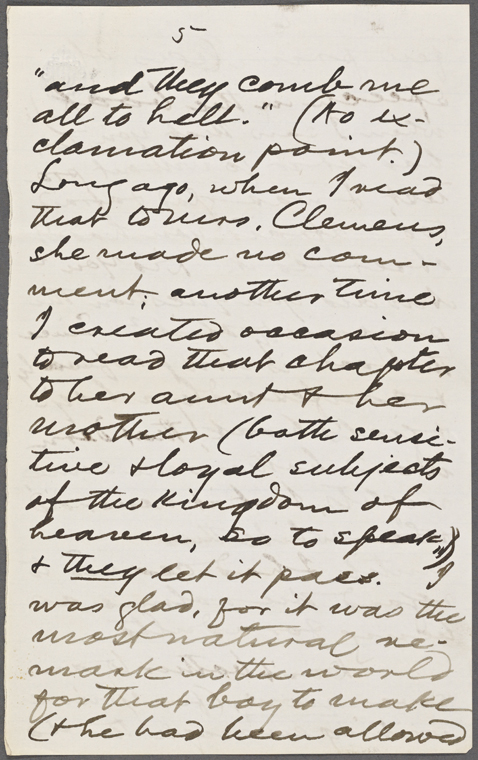 5
"and they comb me
all to hell." (No ex-
clamation point.)
Long ago, when I read
that to Mrs. Clemens,
she made no com-
ment; another time
I created occasion
to read that chapter
to her aunt & her
mother (both sensi-
tive & loyal subjects
of the kingdom of
heaven, so to speak,)
& they let it pass. I
was glad, for it was the
most natural re-
mark in the world
for that boy to make
(& he had been allowed